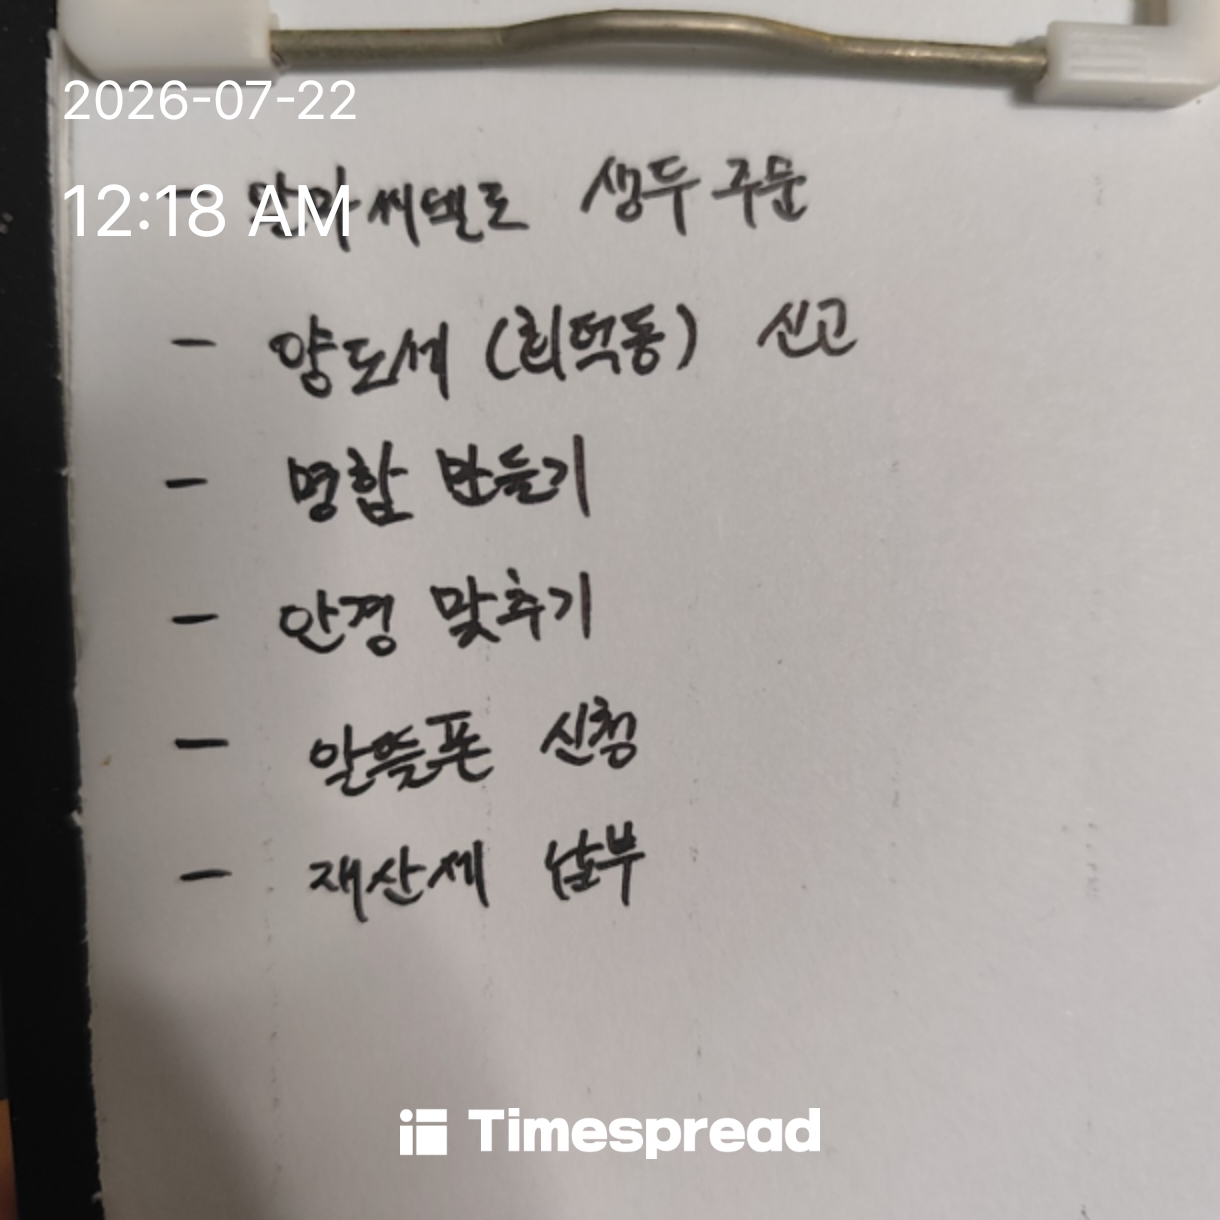 2026-07-22
12:18 AM
알마씨델로 생두 주문
- 양도세 (회덕동) 신고
- 명함 만들기
- 안경 맞추기
- 알뜰폰 신청
- 재산세 납부
Timespread